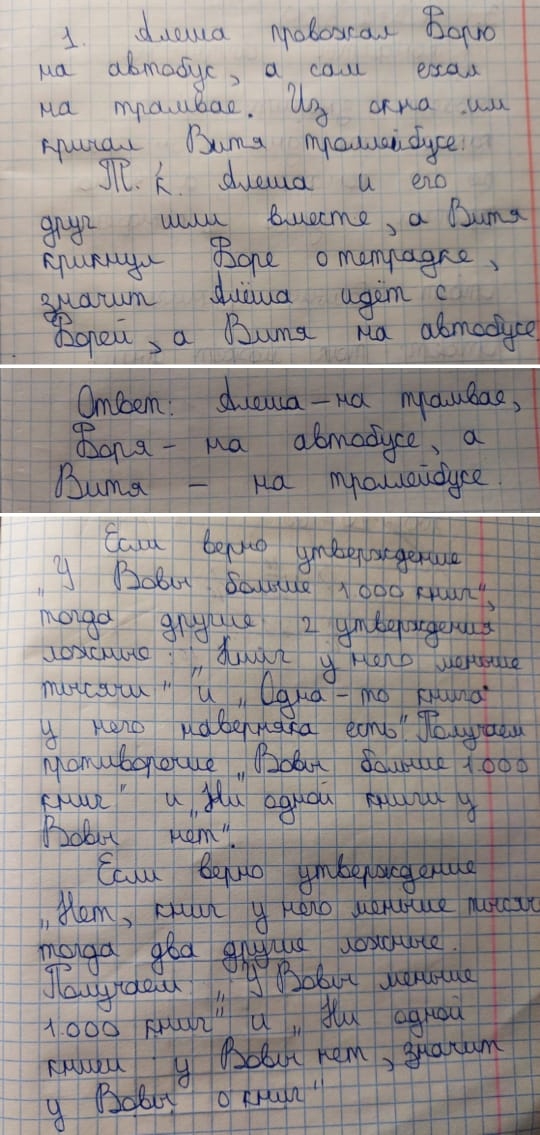 1. Алеша провожал Борю
на автобус, а сам ехал
на трамвае. Из окна им
кричал Витя троллейбусе.
Т. к. Алеша и его
друг шли вместе, а Витя
крикнул Боре о тетрадке,
значит Алёша идёт с
Борей, а Витя на автобусе
Ответ: Алеша – на трамвае,
Боря – на автобусе, а
Витя – на троллейбусе.
Если верно утверждение
„У Вовы больше 1000 книг",
тогда другие 2 утверждения
ложные: „Книг у него меньше
тысячи" и „Одна-то книга
у него наверняка есть". Получаем
противоречие „Вовы больше 1000
книг" и „Ни одной книги у
Вовы нет".
Если верно утверждение
„Нет, книг у него меньше тысяч
тогда два другие ложные.
Получаем: „У Вовы меньше
1000 книг" и „Ни одной
книги у Вовы нет, значит
у Вовы 0 книг"